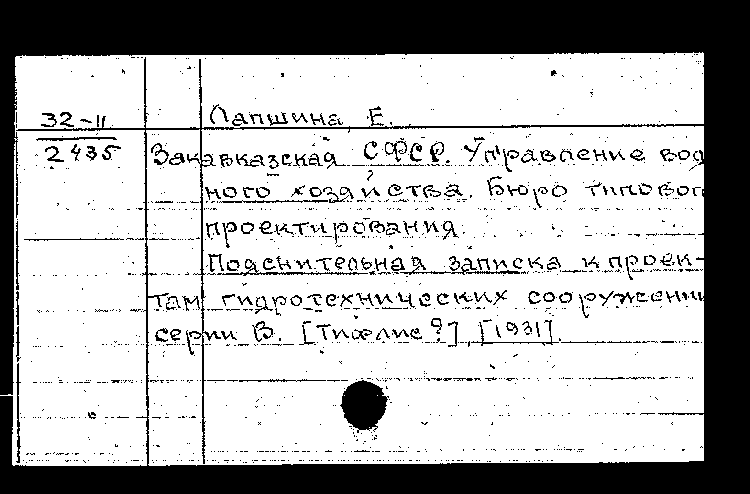 32-11
2435
Лапшина, Е.
Закавказская СФСР. Управление вод
ного хозяйства. Бюро типовог
проектирования.
Пояснительная записка к проек-
там гидротехнических сооружени
серии В. [Тифлис?], [1931].